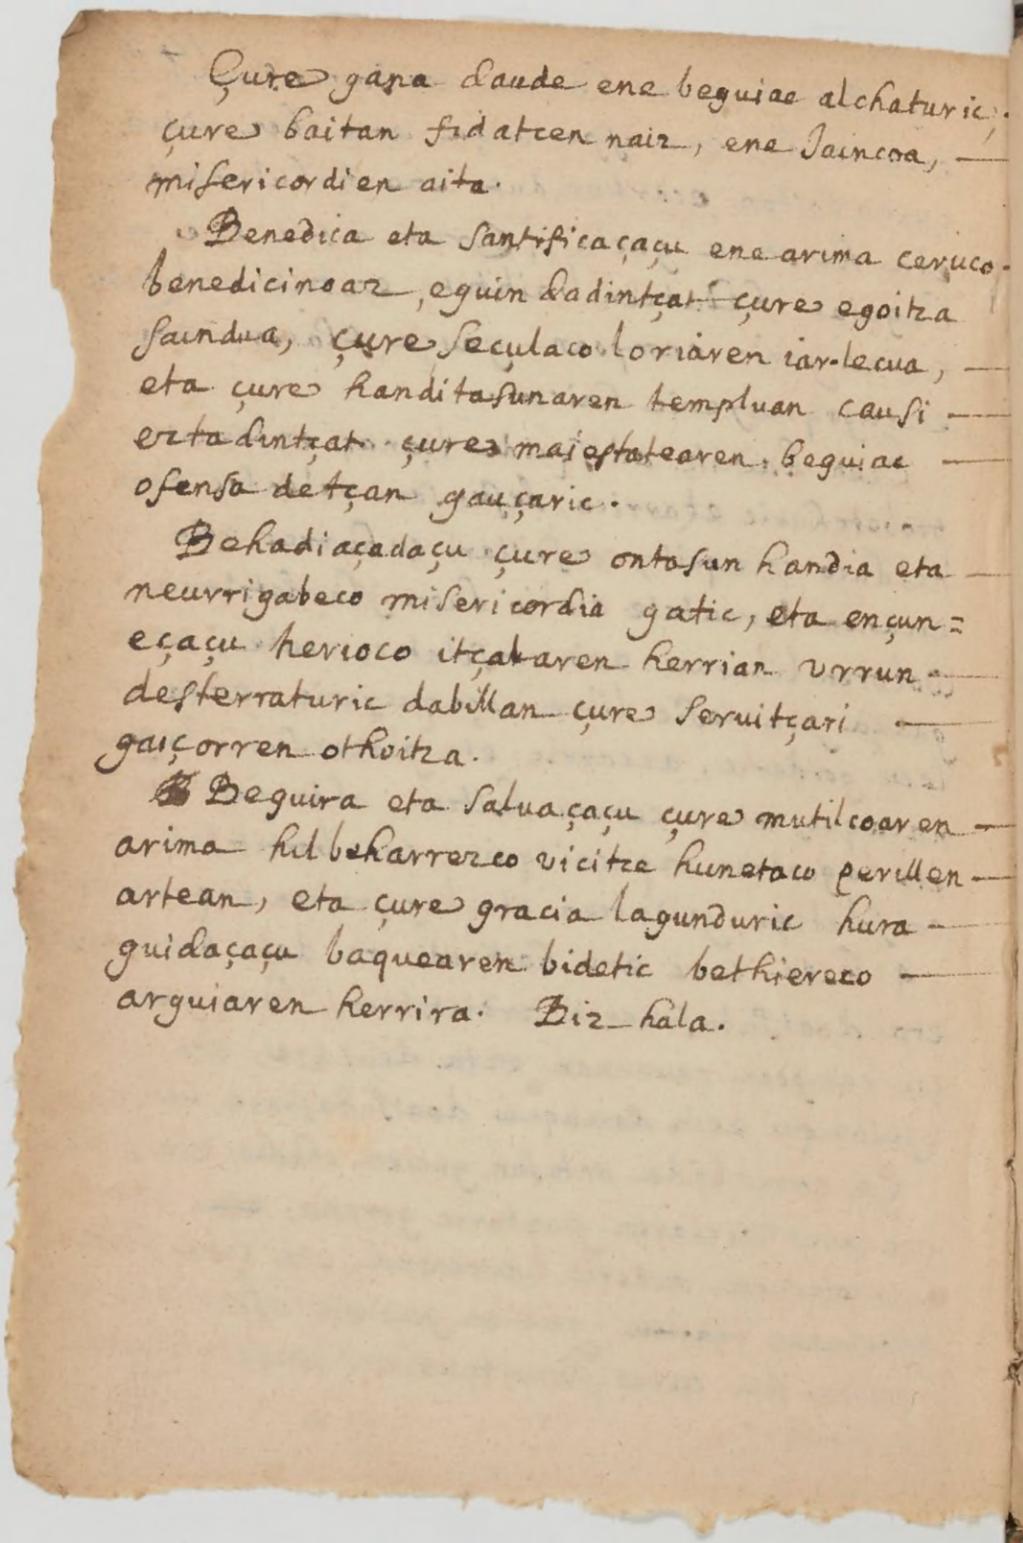 Çure gana daude ene beguiac alchaturic,
çure baitan fidatcen naiz, ene Jaincoa, —
misericordien aita.
Benedica eta santificaçaçu ene arima ceruco
benedicinoaz, eguin dadintçat çure egoitza
saindua, çure seculaco loriaren iar-lecua, —
eta çure handitasunaren templuan causi —
ezta dintçat çure maiestatearen beguiac —
ofensa detçan gauçaric.
Behadiaçadaçu çure ontasun handia eta —
neurrigabeco misericordia gatic, eta ençun=
eçaçu herioco itçalaren herrian vrrun —
desterraturic dabillan çure seruitçari —
gaiçorren othoitza.
Beguira eta salua çaçu çure mutilcoaren —
arima hil beharrezco vicitce hunetaco perillen —
artean, eta çure gracia lagunduric hura —
guidaçaçu baquearen bidetic bethiereco —
arguiaren herrira. Biz-hala.